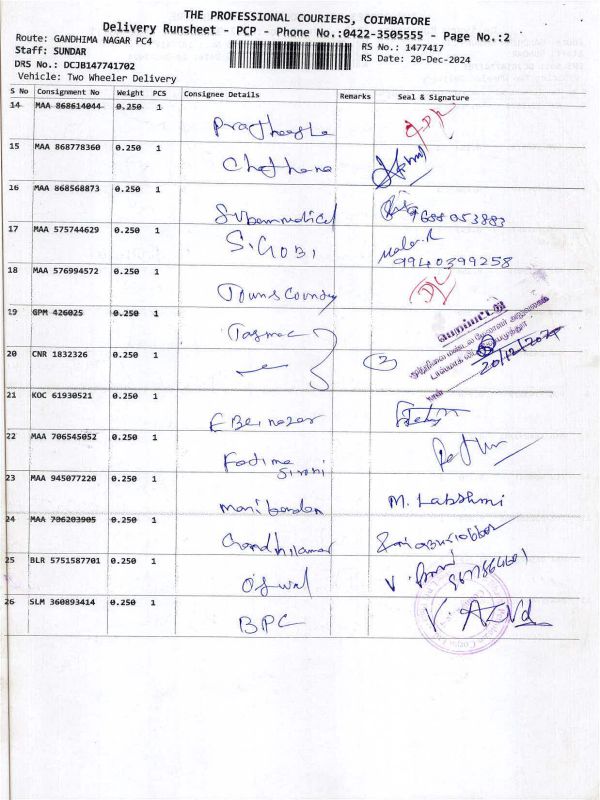 THE PROFESSIONAL COURIERS, COIMBATORE
Delivery Runsheet - PCP - Phone No.:0422-3505555 - Page No.:2
Route: GANDHIMA NAGAR PC4
RS No.: 1477417
Staff: SUNDAR
RS Date: 20-Dec-2024
DRS No.: DCJB147741702
Vehicle: Two Wheeler Delivery
S No Consignment No Weight PCS Consignee Details Remarks Seal & Signature
14 MAA 868614044 0.250 1
15 MAA 868778360 0.250 1
Chethana
16 MAA 868568873 0.250 1
Subam medical 9688053883
17 MAA 575744629 0.250 1
S. GOBI Mala.R
9940399258
18 MAA 576994572 0.250 1
Towns Country DL
19 GPM 426025 0.250 1
Tasmac
பெறப்பட்டது
20 CNR 1832326 0.250 1
3
20/12/2024
21 KOC 61930521 0.250 1
Ebeinazar
22 MAA 706545052 0.250 1
Fatima
23 MAA 945077220 0.250 1
Manibardan M. Labshmi
24 MAA 736203905 0.250 1
25 BLR 5751587701 0.250 1
Oswal
26 SLM 360893414 0.250 1
BPC